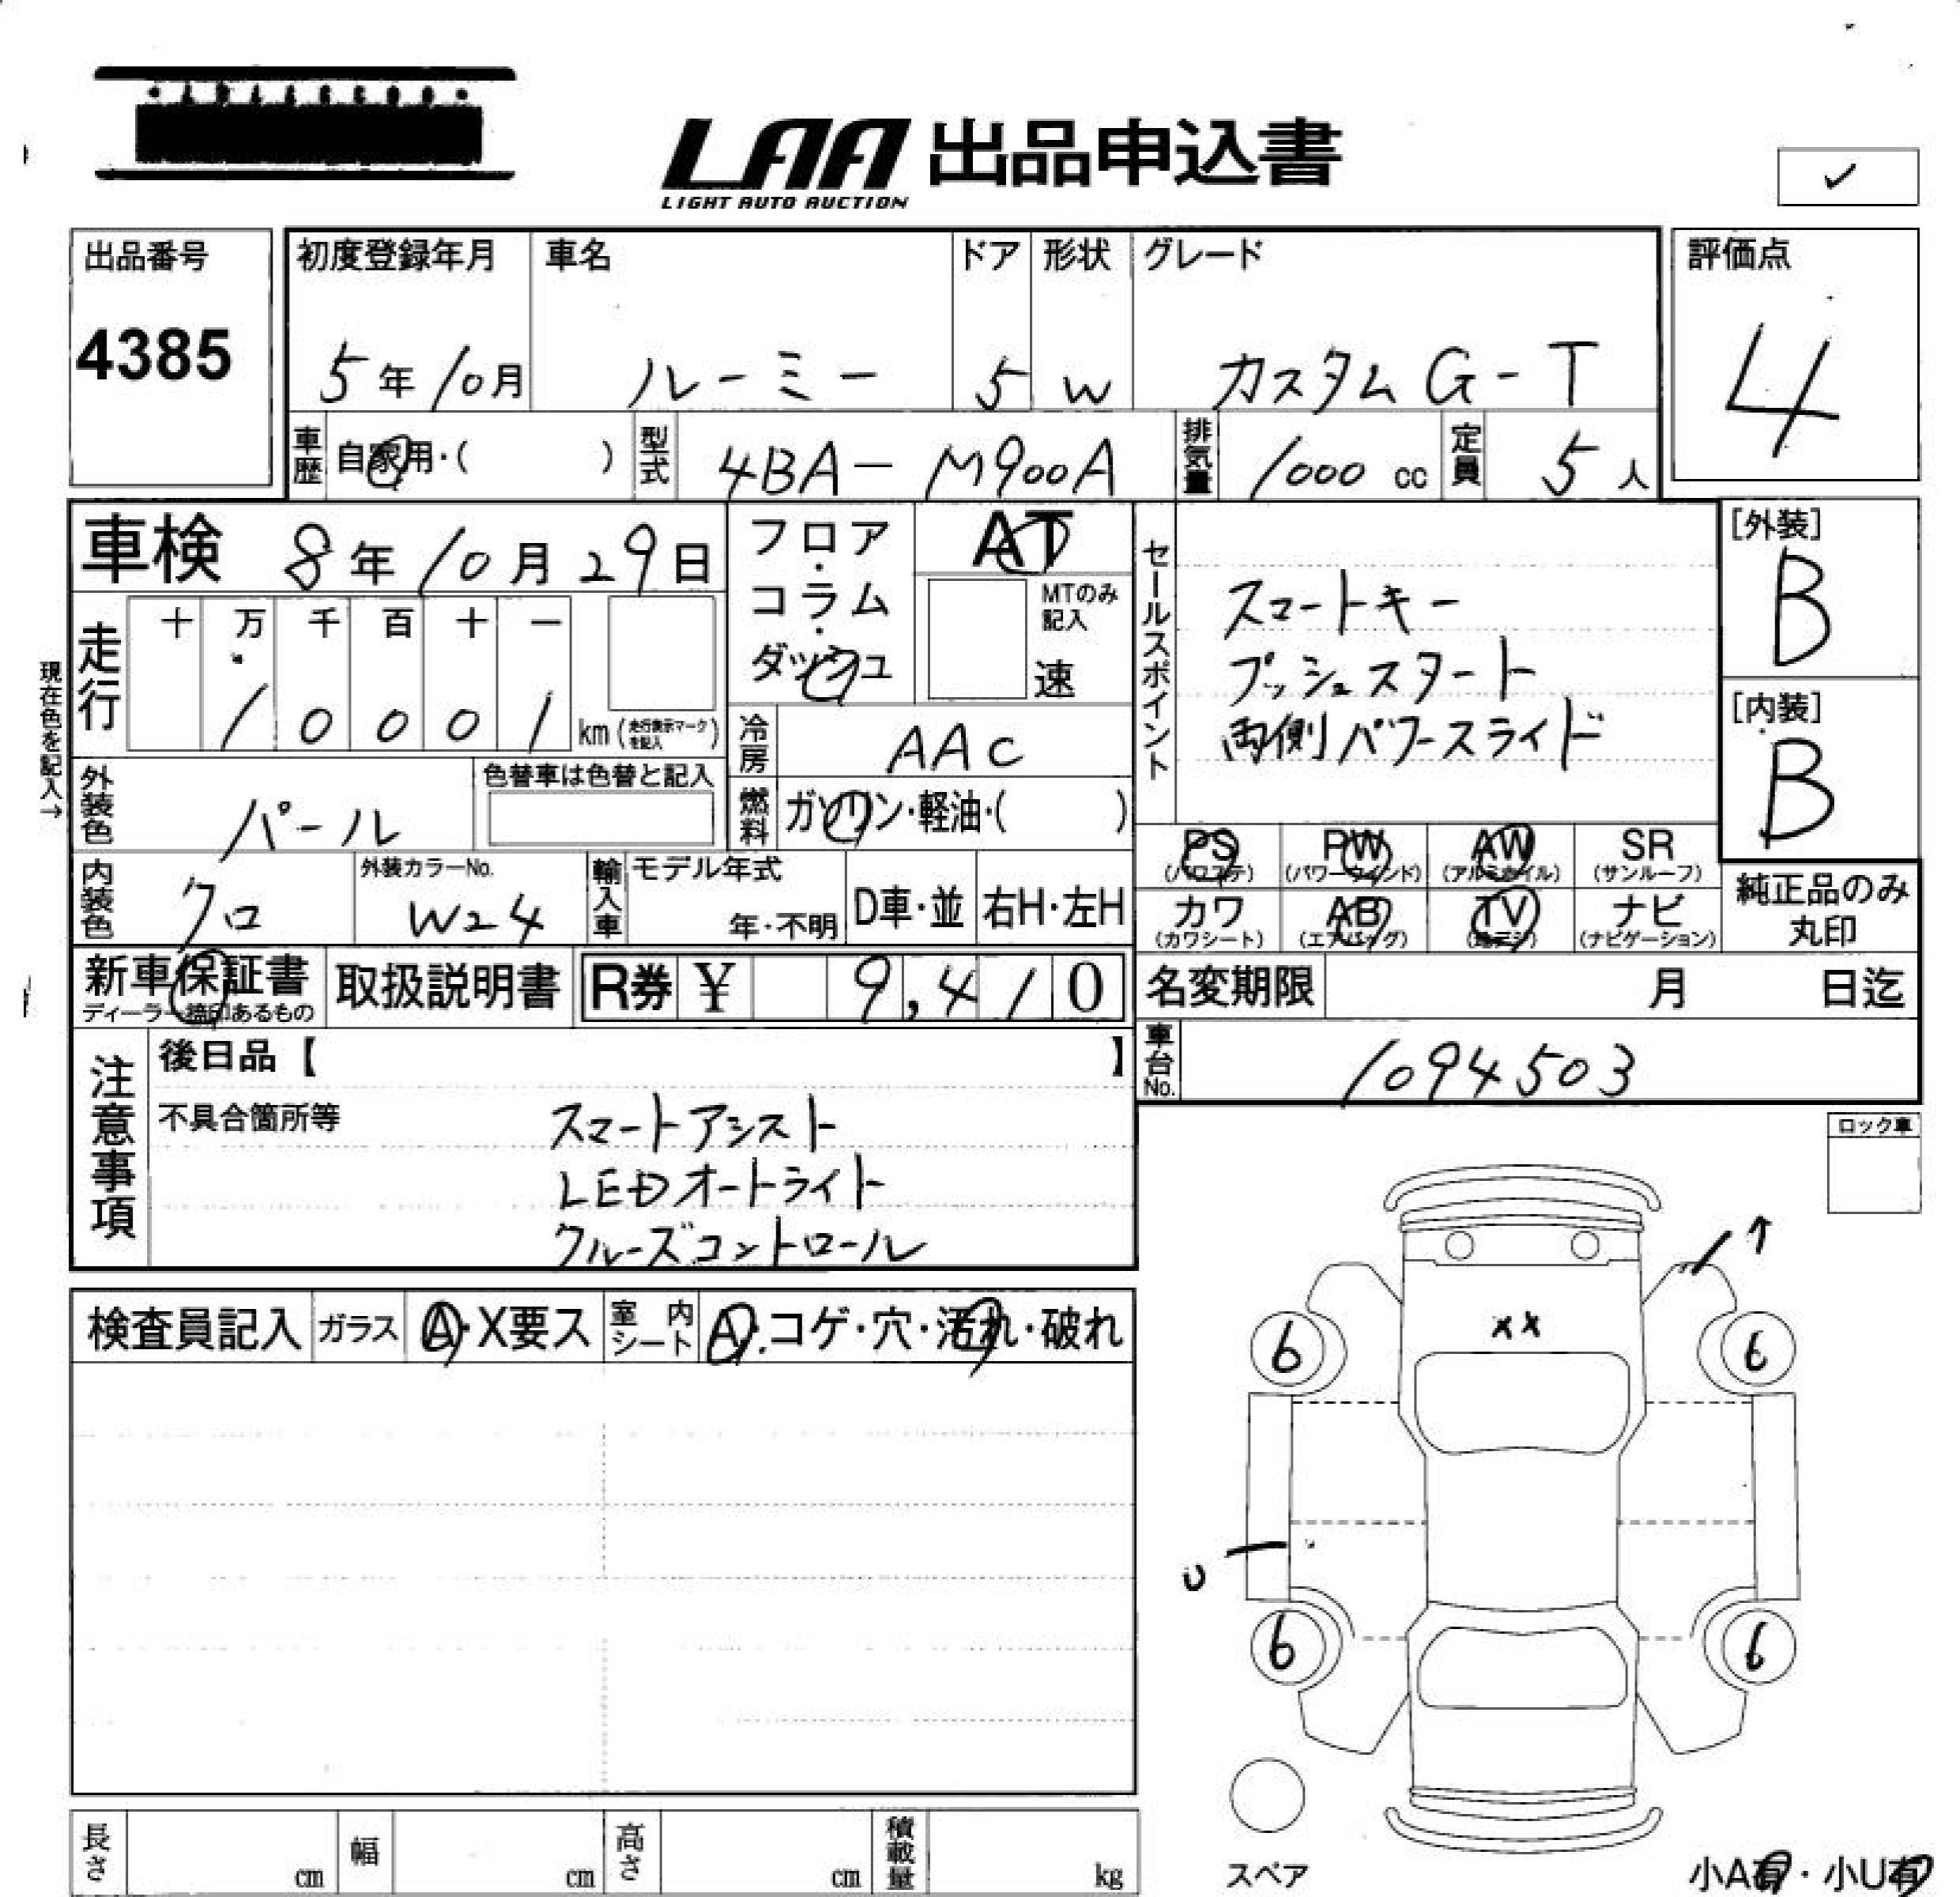 LAA 出品申込書
LIGHT AUTO AUCTION
✓
出品番号
4385
初度登録年月
5年10月
車名
ルーミー
ドア
5
形状
W
グレード
カスタムG-T
評価点
4
車歴
自家用・( )
型式
4BA-M900A
排気量
1000 cc
定員
5人
車検 8年10月29日
フロア・コラム・ダッシュ
AT
MTのみ記入
速
セールスポイント
スマートキー
プッシュスタート
両側パワースライド
[外装]
B
[内装]
B
現在色を記入→
走行
十 万 千 百 十 一
1 0 0 0 1 km (走行表示マークを記入)
冷房
AAC
燃料
ガソリン・軽油・( )
外装色
パール
色替車は色替と記入
内装色
クロ
外装カラーNo.
W24
輸入車
モデル年式
年・不明
D車・並
右H・左H
PS
(パワステ)
PW
(パワーウィンド)
AW
(アルミホイル)
SR
(サンルーフ)
カワ
(カワシート)
AB
(エアバッグ)
TV
(地デジ)
ナビ
(ナビゲーション)
純正品のみ
丸印
新車保証書
ディーラー捺印あるもの
取扱説明書
R券 ¥ 9,410
名変期限 月 日迄
車台No.
1094503
注意事項
後日品【 】
不具合箇所等
スマートアシスト
LEDオートライト
クルーズコントロール
ロック車
検査員記入
ガラス
A・X要ス
室内シート
A・コゲ・穴・汚れ・破れ
↑
××
6 6
U
6 6
スペア
長さ cm
幅 cm
高さ cm
積載量 kg
小A有・小U有